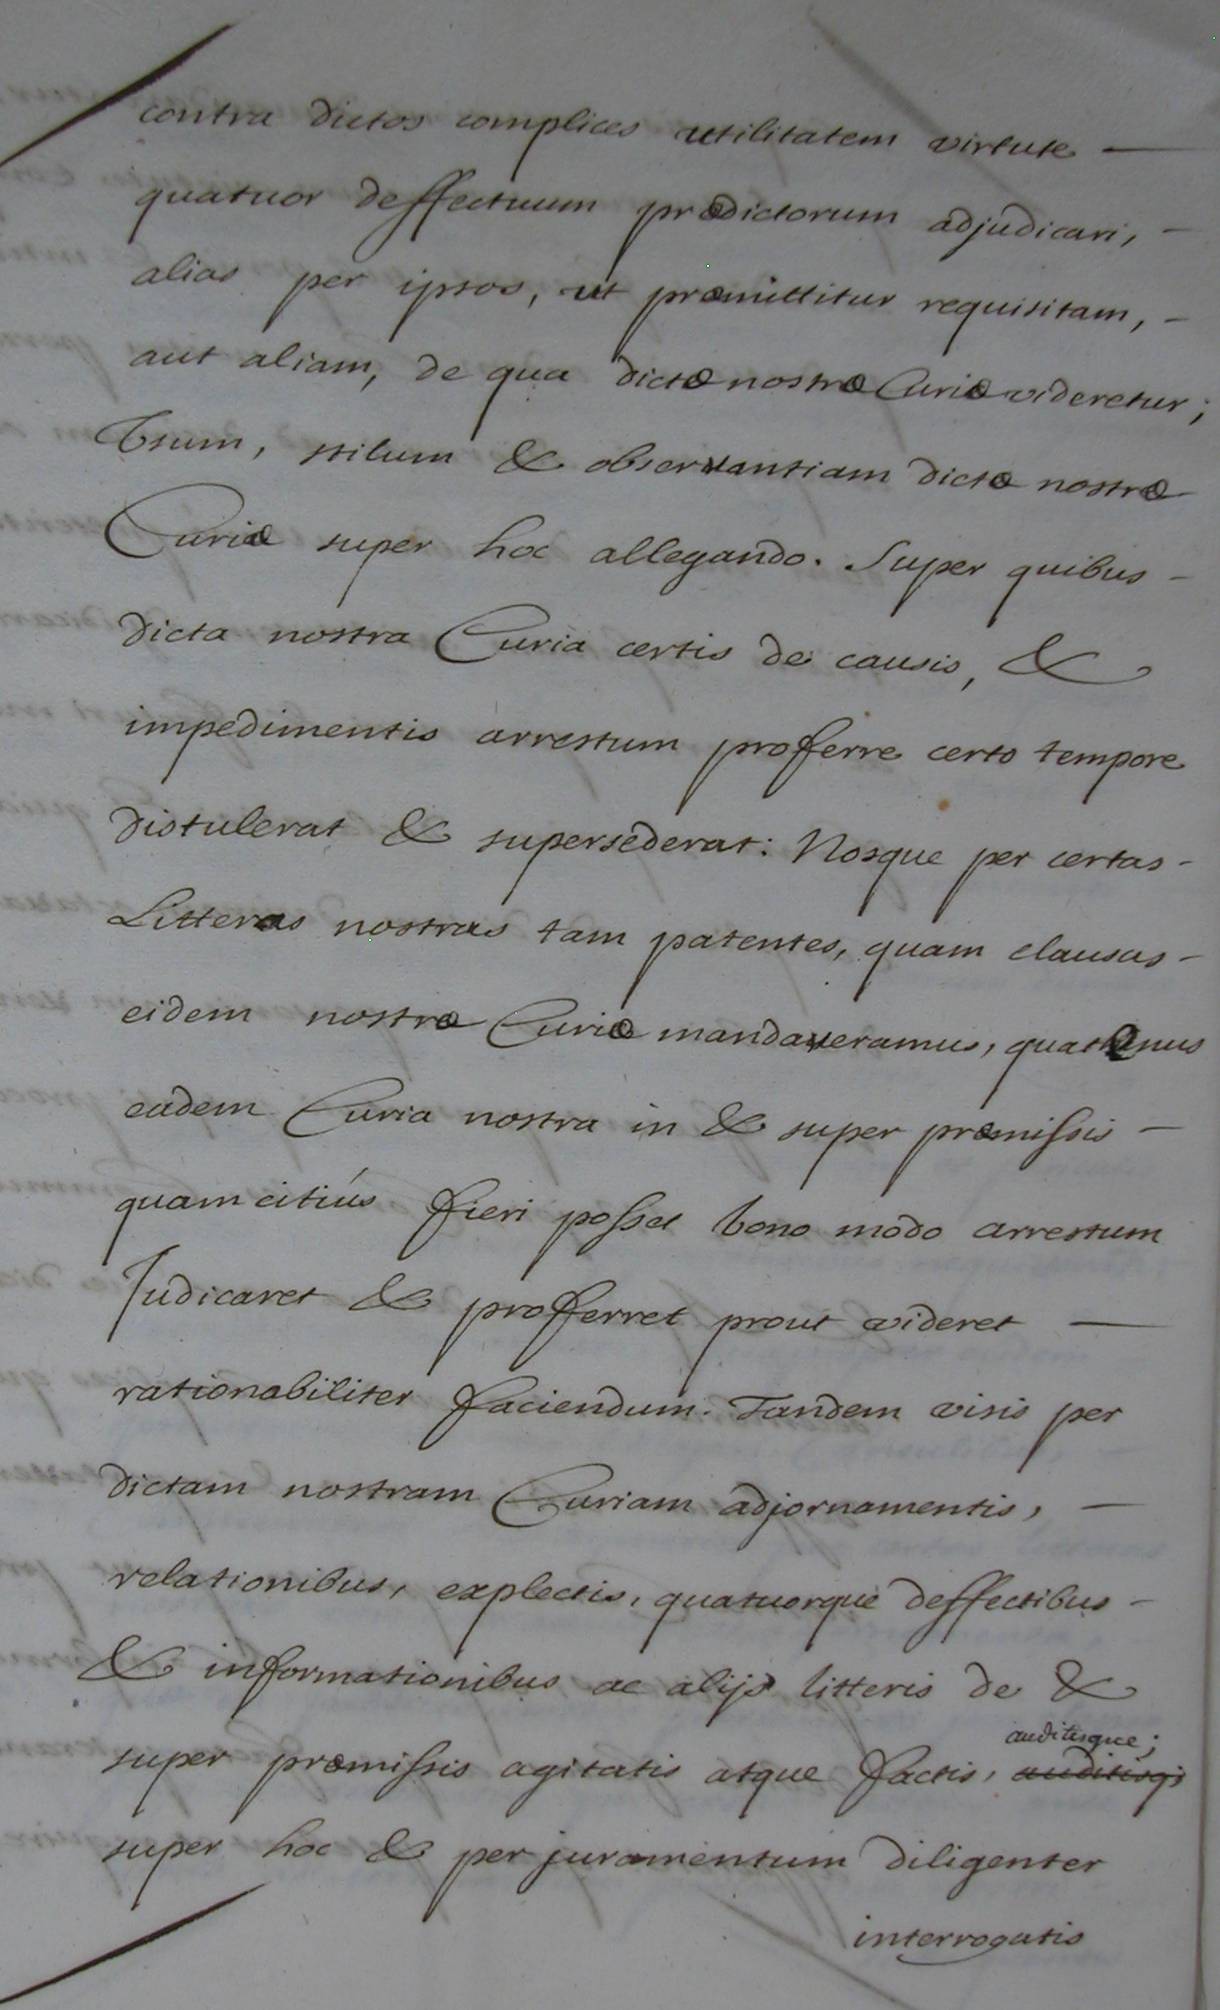 contra dictos complices utilitatem virtute —
quatuor deffectuum prædictorum adjudicari, -
alias per ipsos, ut præmittitur requisitam, -
aut aliam, de qua dictæ nostræ Curiæ videretur;
Usum, stilum & observantiam dictæ nostræ
Curiæ super hoc allegando. Super quibus -
dicta nostra Curia certis de causis, &
impedimentis arrestum proferre certo tempore
distulerat & supersederat: Nosque per certas -
Litteras nostras tam patentes, quam clausas -
eidem nostræ Curiæ mandaveramus, quatenus
eadem Curia nostra in & super præmissis -
quam citiús fieri posset bono modo arrestum
Judicaret & profferret prout videret —
rationabiliter faciendum. Tandem visis per
dictam nostram Curiam adjornamentis, —
relationibus, explectis, quatuorque deffectibus -
& informationibus ac alijs litteris de &
auditisque;
super præmissis agitatis atque factis, auditisq;
super hoc & per juramentum diligenter
interrogatis